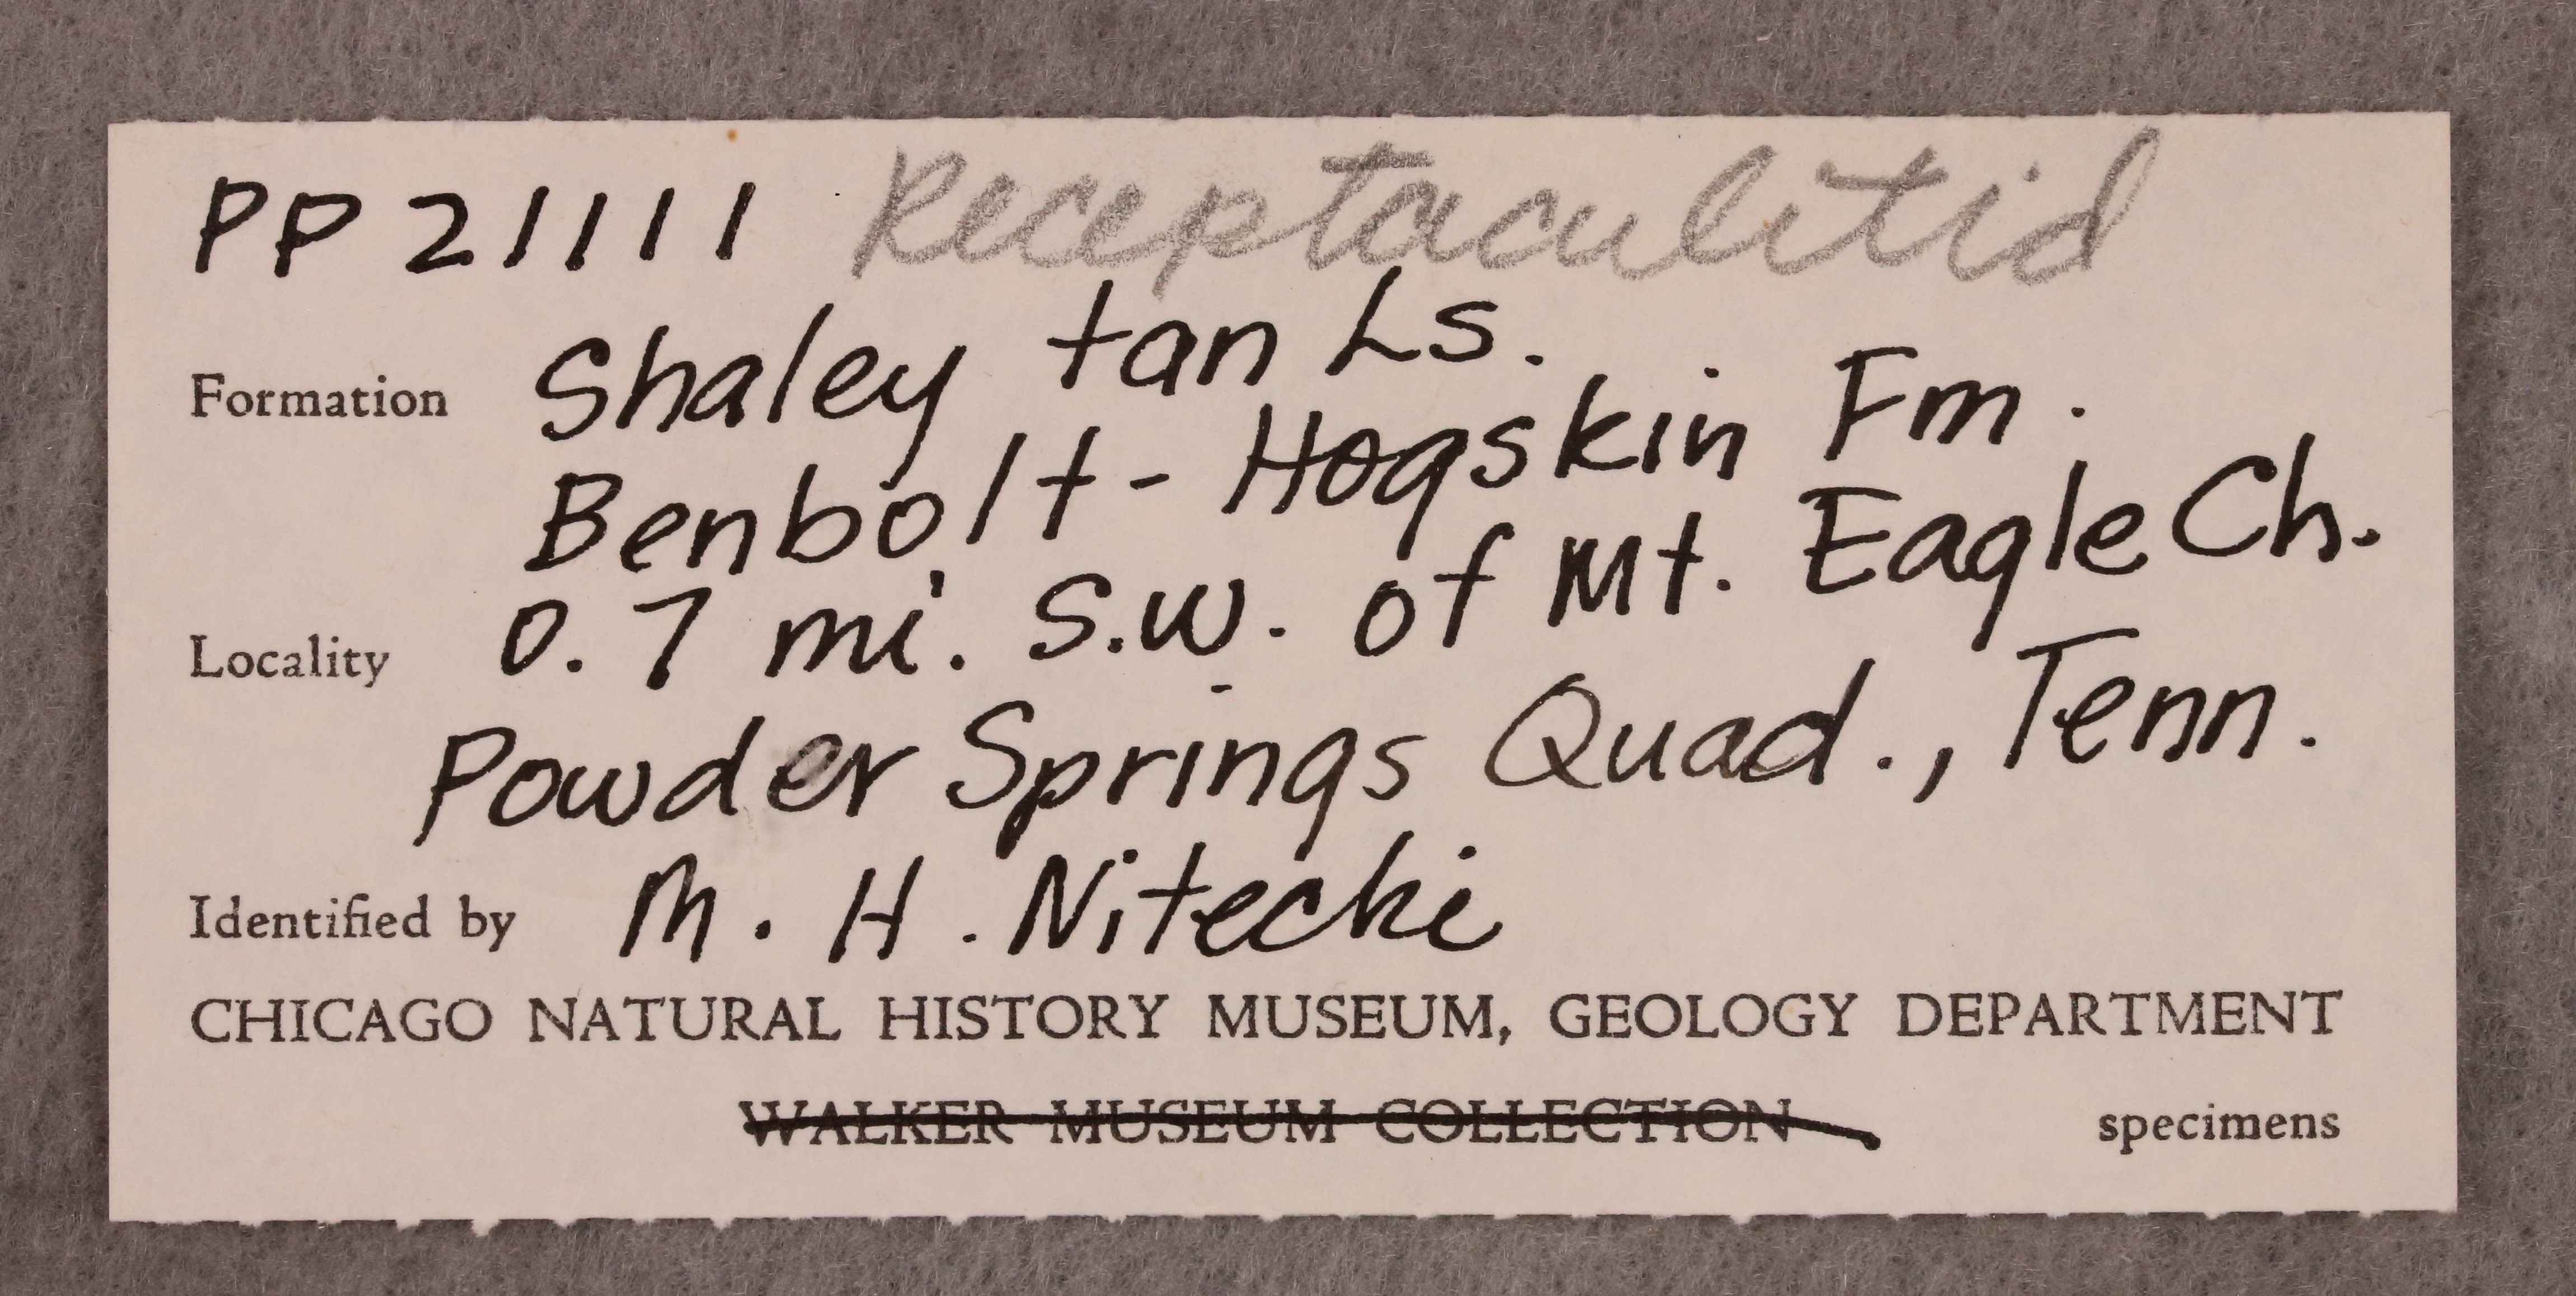 PP 21111 Receptaculitid
Formation Shaley tan Ls.
Benbolt - Hogskin Fm.
Locality 0.7 mi. S.W. of Mt. Eagle Ch.
Powder Springs Quad., Tenn.
Identified by M. H. Nitecki
CHICAGO NATURAL HISTORY MUSEUM, GEOLOGY DEPARTMENT
WALKER MUSEUM COLLECTION specimens